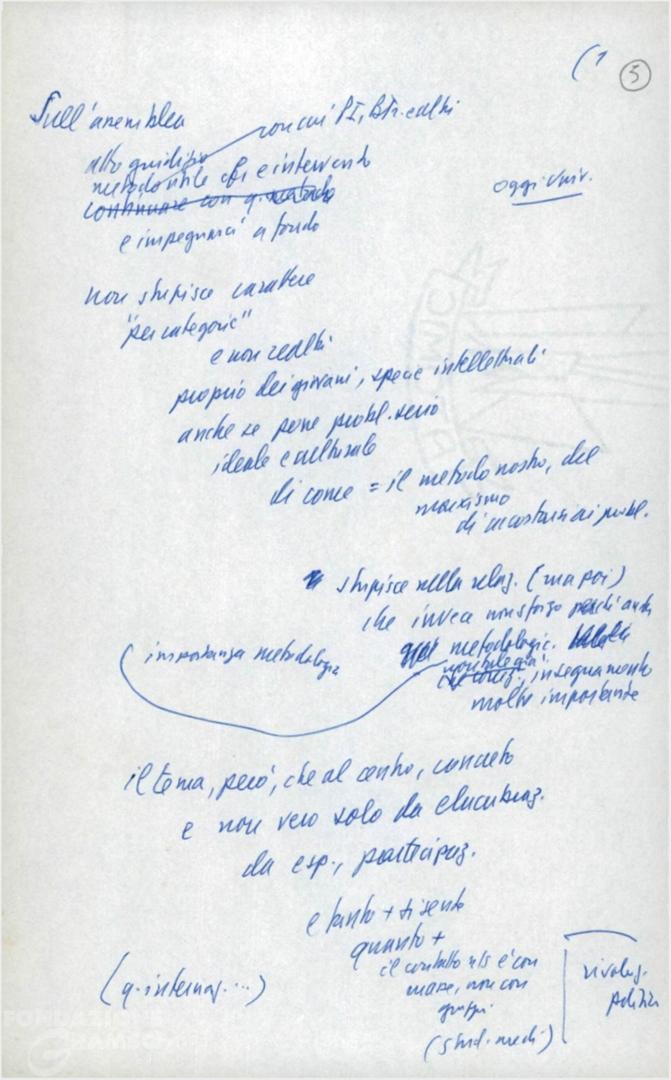 (1 5
Sull'assemblea
con cui PI, BTr. e altri
alto giudizio
metodo utile che e intervento
oggi univ.
continuare con q. metodo
e impegnarci a fondo
non stupisce carattere
"per categorie"
e non realtà
proprio dei giovani, specie intellettuali
anche se pone probl. serio
ideale e culturale
di come = il metodo nostro, del
marxismo
di accostarsi ai probl.
stupisce nella relaz. (ma poi)
che invece non sforzo perché anche
metodologic.
importanza metodologia
insegnamento
molto importante
il tema, però, che al centro, concreto
e non vero solo da elucubraz.
da esp., partecipaz.
e tanto + si sente
quanto +
il contatto ns è con
masse, non con
gruppi
(q. internaz....)
(stud. medi)
rivoluz.
politica
FONDAZIONE
GRAMSCI